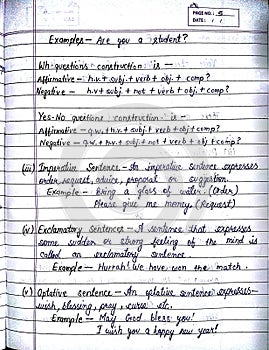 PAGE NO.: 5
DATE: / /
Examples - Are you a student?
Wh-questions construction is -
Affirmative - h.v + subj + verb + obj + comp?
Negative - h.v + subj + not + verb + obj + comp?
Yes-No questions construction is -
Affirmative - q.w + h.v + subj + verb + obj + comp?
Negative - q.w + h.v + subj + not + verb + obj + comp?
(iii) Imperative Sentence - An imperative sentence expresses
order, request, advice, proposal or suggestion.
Example - Bring a glass of water. (Order)
Please give me money. (Request)
(iv) Exclamatory Sentences - A sentence that expresses
some sudden or strong feeling of the mind is
called an exclamatory sentence.
Example - Hurrah! we have won the match.
(v) Optative sentence - An optative sentence expresses -
wish, blessing, pray, curse etc.
Example - May God bless you!
I wish you a happy new year!